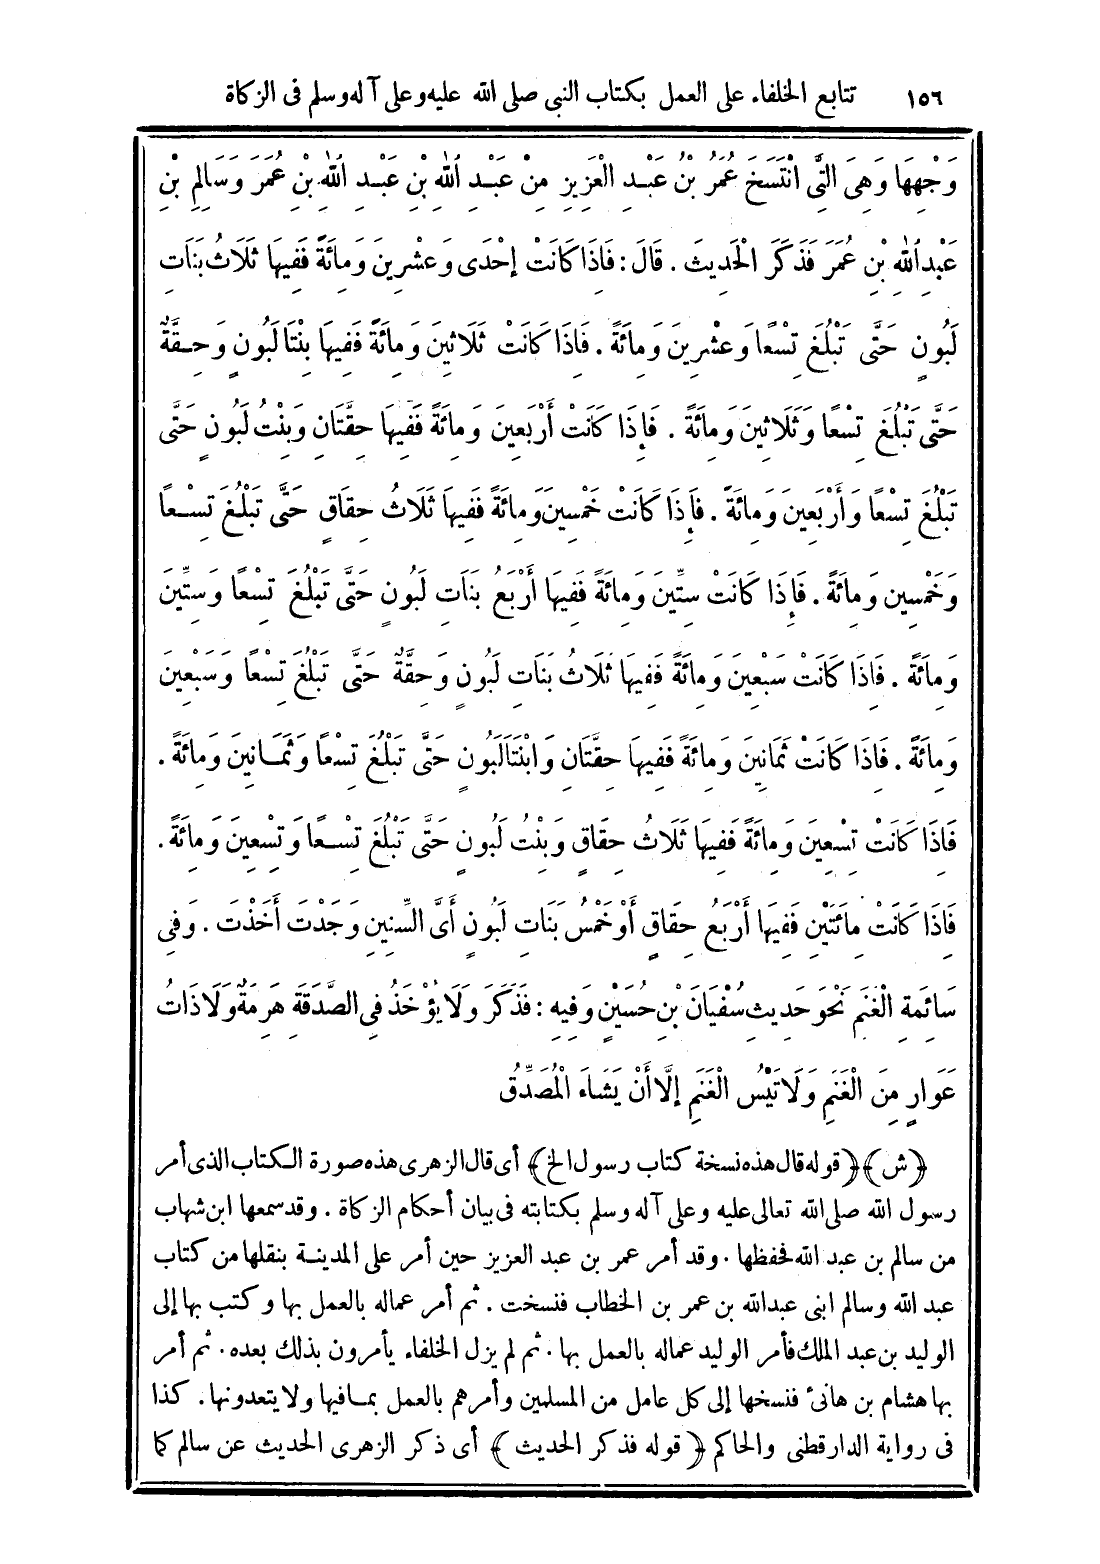 ١٥٦ تتابع الخلفاء على العمل بكتاب النبى صلى الله عليه وعلى آله وسلم فى الزكاة
وَجْهِهَا وَهِىَ الَّتِى انْتَسَخَ عُمَرُ بْنُ عَبْدِ الْعَزِيزِ مِنْ عَبْدِ اللهِ بْنِ عَبْدِ اللهِ بْنِ عُمَرَ وَسَالِمِ بْنِ
عَبْدِ اللهِ بْنِ عُمَرَ فَذَكَرَ الْحَدِيثَ . قَالَ : فَإِذَا كَانَتْ إِحْدَى وَعِشْرِينَ وَمِائَةً فَفِيهَا ثَلَاثُ بَنَاتِ
لَبُونٍ حَتَّى تَبْلُغَ تِسْعًا وَعِشْرِينَ وَمِائَةً . فَإِذَا كَانَتْ ثَلَاثِينَ وَمِائَةً فَفِيهَا بِنْتَا لَبُونٍ وَحِقَّةٌ
حَتَّى تَبْلُغَ تِسْعًا وَثَلَاثِينَ وَمِائَةً . فَإِذَا كَانَتْ أَرْبَعِينَ وَمِائَةً فَفِيهَا حِقَّتَانِ وَبِنْتُ لَبُونٍ حَتَّى
تَبْلُغَ تِسْعًا وَأَرْبَعِينَ وَمِائَةً . فَإِذَا كَانَتْ خَمْسِينَ وَمِائَةً فَفِيهَا ثَلَاثُ حِقَاقٍ حَتَّى تَبْلُغَ تِسْعًا
وَخَمْسِينَ وَمِائَةً . فَإِذَا كَانَتْ سِتِّينَ وَمِائَةً فَفِيهَا أَرْبَعُ بَنَاتِ لَبُونٍ حَتَّى تَبْلُغَ تِسْعًا وَسِتِّينَ
وَمِائَةً . فَإِذَا كَانَتْ سَبْعِينَ وَمِائَةً فَفِيهَا ثَلَاثُ بَنَاتِ لَبُونٍ وَحِقَّةٌ حَتَّى تَبْلُغَ تِسْعًا وَسَبْعِينَ
وَمِائَةً . فَإِذَا كَانَتْ ثَمَانِينَ وَمِائَةً فَفِيهَا حِقَّتَانِ وَابْنَتَا لَبُونٍ حَتَّى تَبْلُغَ تِسْعًا وَثَمَانِينَ وَمِائَةً .
فَإِذَا كَانَتْ تِسْعِينَ وَمِائَةً فَفِيهَا ثَلَاثُ حِقَاقٍ وَبِنْتُ لَبُونٍ حَتَّى تَبْلُغَ تِسْعًا وَتِسْعِينَ وَمِائَةً .
فَإِذَا كَانَتْ مِائَتَيْنِ فَفِيهَا أَرْبَعُ حِقَاقٍ أَوْ خَمْسُ بَنَاتِ لَبُونٍ أَىَّ السِّنِينِ وَجَدْتَ أَخَذْتَ . وَفِى
سَائِمَةِ الْغَنَمِ نَحْوَ حَدِيثِ سُفْيَانَ بْنِ حُسَيْنٍ وَفِيهِ : فَذَكَرَ وَلَا يُؤْخَذُ فِى الصَّدَقَةِ هَرِمَةٌ وَلَا ذَاتُ
عَوَارٍ مِنَ الْغَنَمِ وَلَا تَيْسُ الْغَنَمِ إِلَّا أَنْ يَشَاءَ الْمُصَدِّقُ
﴿ش﴾ ﴿قوله قال هذه نسخة كتاب رسول الخ﴾ أى قال الزهرى هذه صورة الكتاب الذى أمر
رسول الله صلى الله تعالى عليه وعلى آله وسلم بكتابته فى بيان أحكام الزكاة . وقد سمعها ابن شهاب
من سالم بن عبد الله فحفظها . وقد أمر عمر بن عبد العزيز حين أمر على المدينة بنقلها من كتاب
عبد الله وسالم ابنى عبد الله بن عمر بن الخطاب فنسخت . ثم أمر عماله بالعمل بها وكتب بها إلى
الوليد بن عبد الملك فأمر الوليد عماله بالعمل بها . ثم لم يزل الخلفاء يأمرون بذلك بعده . ثم أمر
بها هشام بن هانئ فنسخها إلى كل عامل من المسلمين وأمرهم بالعمل بما فيها ولا يتعدونها . كذا
فى رواية الدارقطنى والحاكم ﴿قوله فذكر الحديث﴾ أى ذكر الزهرى الحديث عن سالم كما